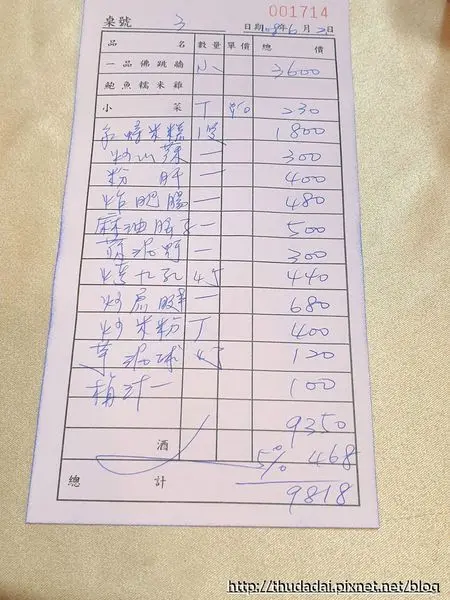 001714
桌號 3 日期 年6月2日
品名 數量 單價 總價
一品佛跳牆 小 3600
鮑魚糯米雞
小菜 230
紅蟳米糕 1隻 1800
炒山蘇 一 300
粉肝 一 400
炸肥腸 一 480
麻油腰子 一 500
一 300
烤九孔 4个 440
炒 一 680
炒米粉 400
芋泥球 4个 120
汁一 100
9350
酒
5% 468
總計 9818
http://thudadai.pixnet.net/blog